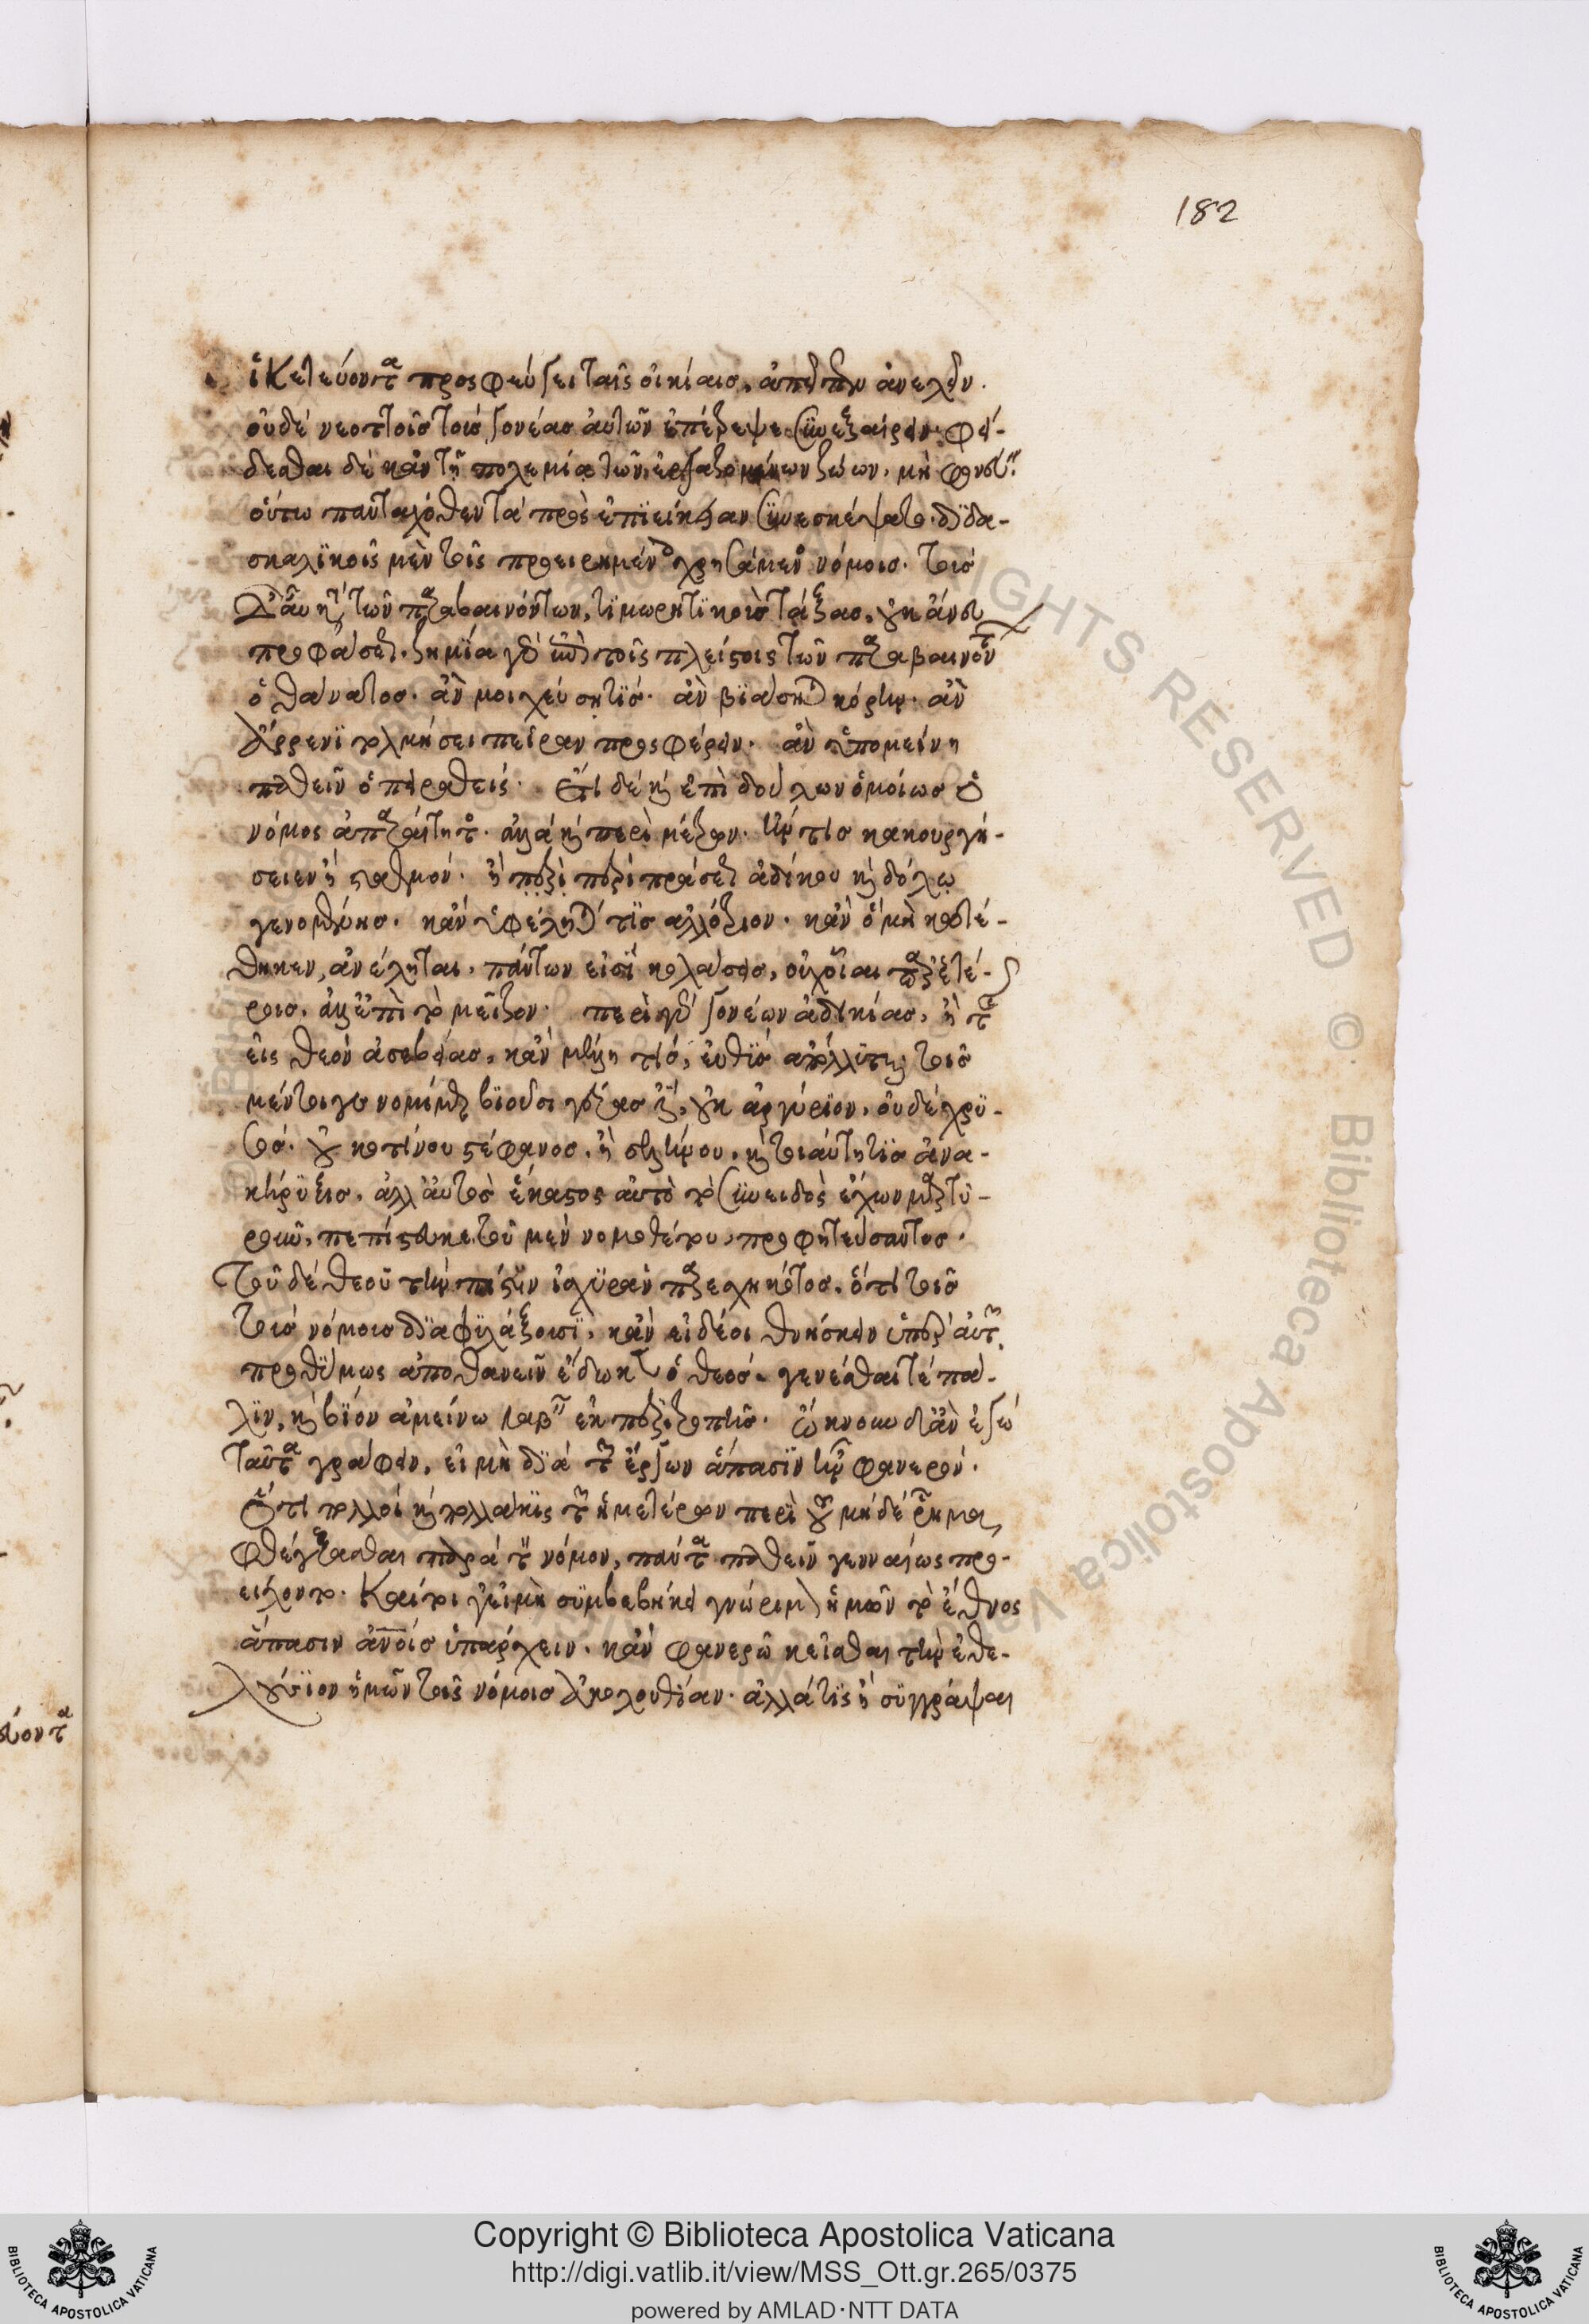 182
ἱκετεύοντα προσφεύγει ταῖς οἰκίαις, ἀπεῖπεν ἀνελεῖν.
οὐδὲ νεοττοῖς τοὺς γονέας αὐτῶν ἐπέτρεψε συνεξαίρειν. φεί-
δεσθαι δὲ κἀν τῇ πολεμίᾳ τῶν ἐργαζομένων ζῴων. μὴ φονεύ
οὕτω πανταχόθεν τὰ πρὸς ἐπιείκειαν συνεσκέψατο. διδα-
σκαλικοῖς μὲν τοῖς προειρημένοις χρησάμενος νόμοις. τοὺς
δ᾽ αὖ κατὰ τῶν παραβαινόντων, τιμωρητικοὺς τάξας, οὐκ ἄνευ
προφάσεως. ζημία γὰρ ἐπὶ τοῖς πλείστοις τῶν παραβαινόντων
ὁ θάνατος. ἂν μοιχεύσῃ τίς. ἂν βιάσηται κόρην. ἂν
ἄρρενι τολμήσει πεῖραν προσφέρειν. ἂν ὑπομείνῃ
παθεῖν ὁ πειραθείς. ἔτι δὲ καὶ ἐπὶ δούλων ὁμοίως ὁ
νόμος ἀπαραίτητος. ἀλλὰ καὶ περὶ μέτρων. ἤν τις κακουργή-
σειεν ἢ σταθμόν. ἢ περὶ πράσεως ἀδίκου καὶ δόλῳ
γενομένης. κἂν ὑφέληται τὶς ἀλλότριον. κἂν ὃ μὴ κατέ-
θηκεν, ἀνέληται. πάντων εἰσὶ κολάσεις, οὐχ οἷαι παρ᾽ ἑτέ-
ροις, ἀλλ᾽ ἐπὶ τὸ μεῖζον. περὶ γὰρ γονέων ἀδικίας, ἢ τῆς
εἰς θεὸν ἀσεβείας, κἂν μελλήσῃ τίς, εὐθὺς ἀπόλλυται. τοῖς
μέντοιγε νομίμως βιοῦσι γέρας ἐστὶν, οὐκ ἀργύριον, οὐδὲ χρυ-
σός. οὐ κοτίνου στέφανος, ἢ σελίνου, καὶ τοιαύτη τὶς ἀνα-
κήρυξις. ἀλλ᾽ αὐτὸς ἕκαστος αὐτὸ τὸ συνειδὸς ἔχων μαρτυ-
ροῦν, πεπίστευκε. τοῦ μὲν νομοθέτου, προφητεύσαντος.
τοῦ δὲ θεοῦ τὴν πίστιν ἰσχυρὰν παρεσχηκότος. ὅτι τοῖς
τοὺς νόμους διαφυλάξουσι, κἂν εἰ δέοι θνήσκειν ὑπὲρ αὐτῶν
προθύμως ἀποθανεῖν ἔδωκεν ὁ θεός. γενέσθαι τὲ πά-
λιν, καὶ βίον ἀμείνω λαβεῖν ἐκ περιτροπῆς. ὤκνουν δ᾽ ἂν ἐγὼ
ταῦτα γράφειν, εἰ μὴ διὰ τῶν ἔργων ἅπασιν ἦν φανερόν.
ὅτι πολλοὶ καὶ πολλάκις τῶν ἡμετέρων περὶ τοῦ μηδὲ ῥῆμα
φθέγξασθαι παρὰ τὸν νόμον, πάντα παθεῖν γενναίως προ-
είλοντο. καίτοι γε εἰ μὴ συμβεβήκει γνώριμον ἡμῶν τὸ ἔθνος
ἅπασιν ἀνοις ὑπάρχειν. κἂν φανερῷ κεῖσθαι τὴν ἐθε-
λούσιον ἡμῶν τοῖς νόμοις ἀκολουθίαν. ἀλλὰ τὶς ἢ συγγράψαι
Copyright © Biblioteca Apostolica Vaticana
http://digi.vatlib.it/view/MSS_Ott.gr.265/0375
powered by AMLAD·NTT DATA